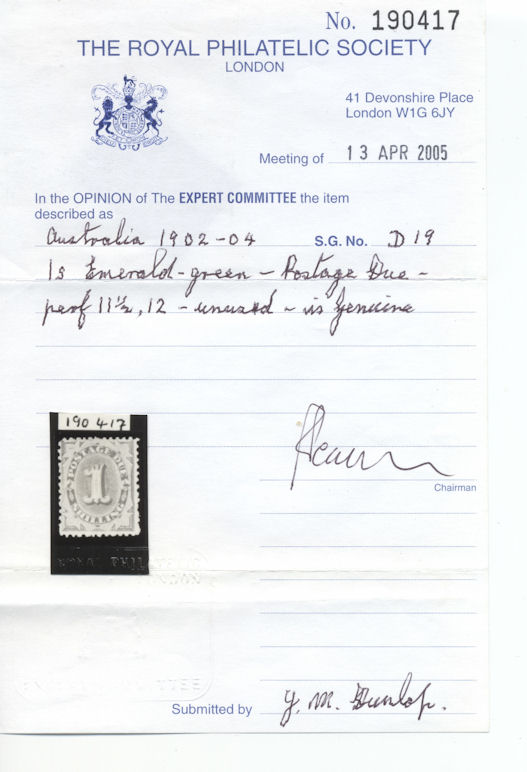 No. 190417
THE ROYAL PHILATELIC SOCIETY
LONDON
41 Devonshire Place
London W1G 6JY
Meeting of 13 APR 2005
In the OPINION of The EXPERT COMMITTEE the item
described as
Australia 1902-04 S.G. No. D19
1s Emerald-green - Postage Due -
perf 11½, 12 - unused - is genuine
190 417
POSTAGE DUE
1
SHILLING
Chairman
ROYAL PHILATELIC
LONDON
Submitted by Y. M. Dunlop.